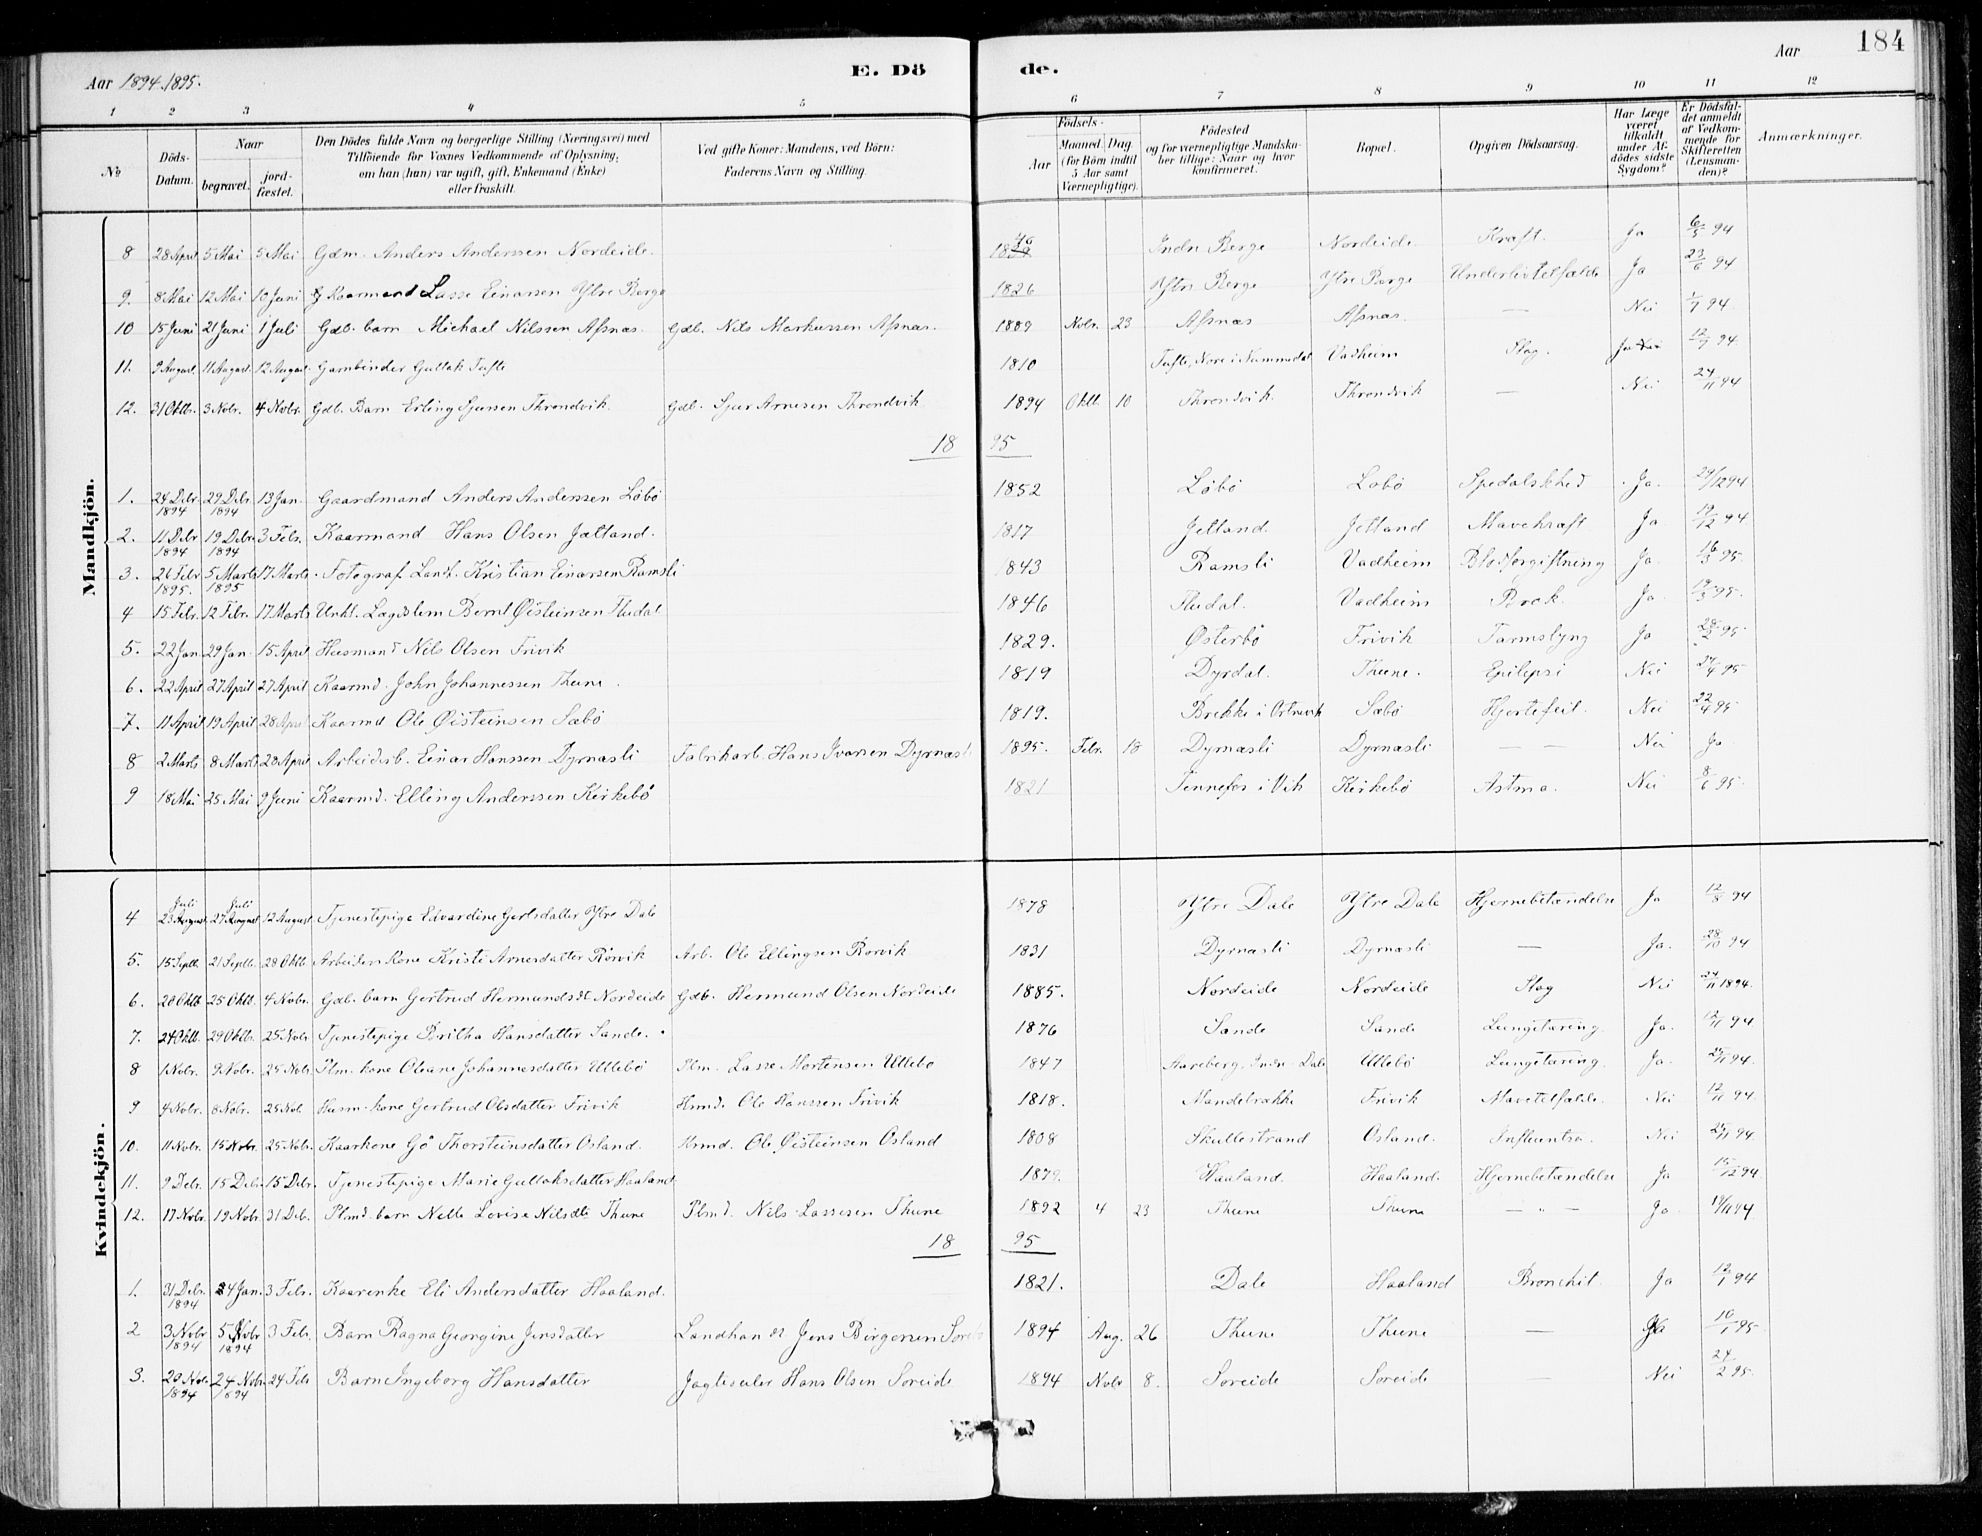 184
Aar 1894.1895.
E. Dö de.
Aar
1 2 3 4 5 6 7 8 9 10 11 12
No
Döds-Datum.
Naar
begravet.
jord-fæstet.
Den Dödes fulde Navn og borgerlige Stilling (Næringsvei) med
Tilföiende for Voxnes Vedkommende af Oplysning,
om han (hun) var ugift, gift, Enkemand (Enke)
eller fraskilt.
Ved gifte Koner: Mandens, ved Börn:
Faderens Navn og Stilling.
Födsels-
Aar
Maaned. Dag.
(for Börn indtil
5 Aar samt
Værnepligtige).
Födested
og for værnepligtige Mandska-
ber tillige: Naar og hvor
konfirmeret.
Bopæl.
Opgiven Dödsaarsag.
Har Læge
været
tilkaldt
under Af-
dödes sidste
Sygdom?
Er Dödsfal-
det anmeldt
af Vedkom-
mende for
Skifteretten
(Lensman-
den)?
Anmærkninger.
Mandkjön.
8 28 April 5 Mai 5 Mai Gdm. Anders Anderssen Nordeide. 18 Indre Berge Nordeide Kræft. Ja 6/5 94
9. 8 Mai 12 Mai 10 Juni Kaarmand Lasse Einarsen Ytre Berge 1826 Ytre Berge Ytre Berge Underlivstilfælde Ja 23/6 94
10 15 Juni 21 Juni 1 Juli Gdb. barn Michael Nilssen Assnæs. Gdb. Nils Markussen Assnæs. 1889 Novbr. 23 Assnæs Assnæs. — Nei 1/7 94
11. 9 August. 11 August. 12 August. Garnbinder Gullak Tufte 1810 Tufte, Nore i Nummedal Vadheim Slag. Ja 12/9 94.
12. 31 Oktb. 3 Novbr. 4 Novbr. Gdb. Barn Erling Sjursen Throndvik. Gdb. Sjur Arnesen Throndvik 1894 Oktb. 10 Throndvik. Throndvik — Nei 24/11 94
18 95
1. 24 Debr. 1894 29 Debr. 1894 13 Jan. Gaardmand Anders Anderssen Löbö 1852 Löbö Löbö Spedalskhed Ja. 29/12 94
2. 11 Debr 1894 19 Debr. 1894 3 Febr. Kaarmand Hans Olsen Jætland. 1817 Jetland. Jetland Mavekræft Ja 19/12 94.
3. 26 Febr 1895. 5 Marts 1895 17 Marts. Fotograf Landh. Kristian Einarsen Ramsli 1843 Ramsli Vadheim Blodforgiftning Ja. 16/3 95.
4 15 Febr. 12 Febr. 17 Marts Unkl. Lægdslem Bernt Øisteinsen Fludal 1846 Fludal. Vadheim Brok. Ja. 19/3 95.
5. 22 Jan 29 Jan. 15 April Husmand Nils Olsen Frivik 1829. Østerbö Frivik Tarmslyng Ja 28/2 95.
6. 22 April 27 April 27 April Kaarmd. John Johannessen Thune. 1819 Dyrdal. Thune. Epilepsi Nei 27/4 95
7. 11 April 19 April 28 April Kaarmd Ole Øisteinsen Sæbö 1819. Brekke i Ortnevik Sæbö Hjertefeil. Nei 22/4 95
8 2 Marts 8 Marts 28 April Arbeiderb. Einar Hanssen Dyrnæsli Fabrikarb. Hans Ivarsen Dyrnæsli 1895. Febr. 18 Dyrnæsli Dyrnæsli — — Nei Ja
9 18 Mai 25 Mai 9 Juni Kaarmd. Elling Anderssen Kirkebö 1821 Tennefos i Vik Kirkebö Astma. Nei 8/6 95.
Kvindekjön.
4 Juli 23 August. Juli 27 August 12 August Tjenestepige Edvardine Gertsdatter Ytre Dale 1878 Ytre Dale Ytre Dale Hjernebetændelse Ja 12/8 94
5. 15 Septb. 21 Septb. 28 Oktb. Arbeiders Kone Kristi Arnesdatter Rörvik Arb. Ole Ellingsen Rörvik 1831 Dyrnæsli Dyrnæsli — Ja. 28/10 94
6. 20 Oktb. 25 Oktb. 4 Novbr. Gdb. barn Gertrud Hermundsdt Nordeide Gdbr. Hermund Olsen Nordeide 1885. Nordeide Nordeide Slag Nei 24/11 1894.
7. 24 Oktb. 29 Oktb. 25 Novbr. Tjenestepige Britha Hansdatter Sande. 1876 Sande Sande Lungetæring. Ja. 12/11 94
8 1 Novbr. 9 Novbr. 25 Nobr. Plm. kone Oleane Johannesdatter Ullebö Plm. Lasse Mortensen Ullebö 1847 Aareberg, Indre-Dale Ullebö Lungetæring. Ja. 25/11 94.
9 4 Novbr. 8 Nobr. 25 Nob. Husm. kone Gertrud Olsdatter Frivik Husmd. Ole Hanssen Frivik 1818. Mandelrække Frivik Mavetilfælde. Nei 12/11 94.
10. 11 Nobr. 15 Nobr. 25 Nobr. Kaarkone Gö Thorsteinsdatter Osland. Krmd. Ole Øisteinsen Osland 1808 Skullestrand Osland. Influentsa. Nei 25/11 94.
11. 9 Debr. 15 Debr. 15 Debr. Tjenestepige Marie Gullaksdatter Haaland 1879. Haaland. Haaland. Hjernebetændelse Ja 15/12 94
12. 17 Nobr. 19 Nobr. 31 Deb. Plmd. barn Nelle Lovise Nilsdt Thune Plmd. Nils Lassesen Thune 1892 4 23 Thune Thune — " — Ja 94
18 95
1. 31 Debr. 1894 4 Jan. 3 Febr. Kaarenke Eli Andersdatter Haaland. 1821. Dale Haaland Bronchit. Ja 12/1 94
2 3 Nobr 1894 5 Nobr 1894 3 Febr. Barn Ragna Georgine Jensdatter Landhandl Jens Birgersen 1894 Aug. 26 Thune Thune — Ja 10/1 95
3. 20 Nobr. 1894 24 Nobr. 1894 24 Febr Barn Ingeborg Hansdatter Jagtseiler Hans Olsen Soreide 1894 Nobr 8. Soreide Soreide — Nei 24/2 95.